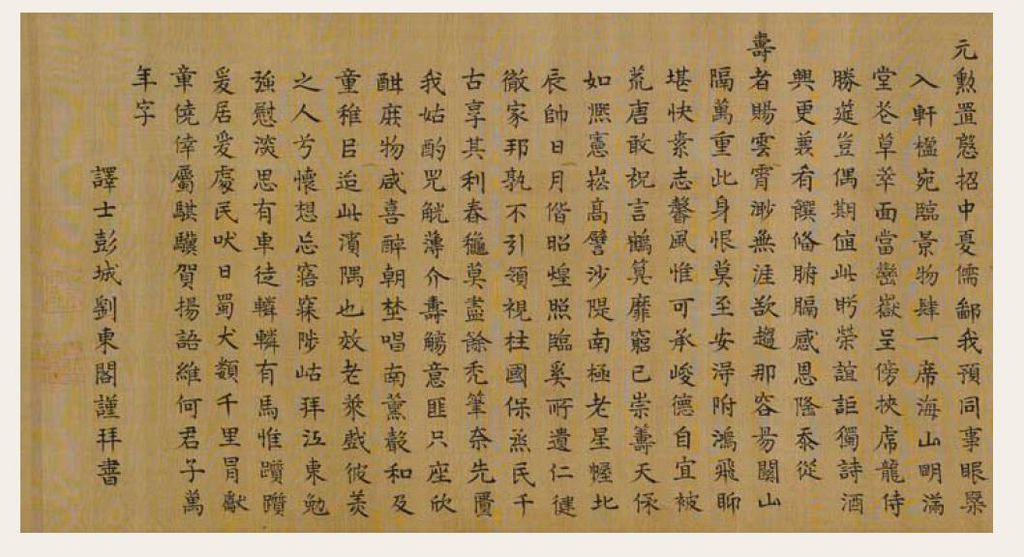 元勲置慇招中夏儒鄙我預同事眼
入軒楹宛臨景物肆一席海山明滿
堂苍草萃面當巒嶽呈傍挾虎龍侍
勝莚豈偶期值此盻榮誼詎獨詩酒
興更兼有饌俻腑膈感恩隆忝從
壽者賜雲霄渺無涯欲趨那容昜關山
隔萬重此身恨莫至安淂附鴻飛聊
堪快素志馨風惟可承峻德自宜被
荒唐敢祝言鶴筭靡窮已崇籌天保
如熈憲崧高譬沙隄南極老星幄北
辰帥日月偕昭煌照臨奚所遺仁健
徹家邦孰不引領視柱國保烝民千
古享其利春龝莫盡餘禿筆奈先匱
我姑酌兕觥薄介壽觴意匪只座欣
酣庶物咸喜醉朝埜唱南薰歡和及
童稚㠯迨此濱隅也效老萊戲彼美
之人兮懷想忘寤寐陟岵拜江東勉
強慰淡思有車徒轔轔有馬惟躦躦
爰居爰處民吠日蜀犬纇千里冐獻
章僥倖屬騏驥賀揚語維何君子萬
年字
譯士彭城劉東閣謹拜書